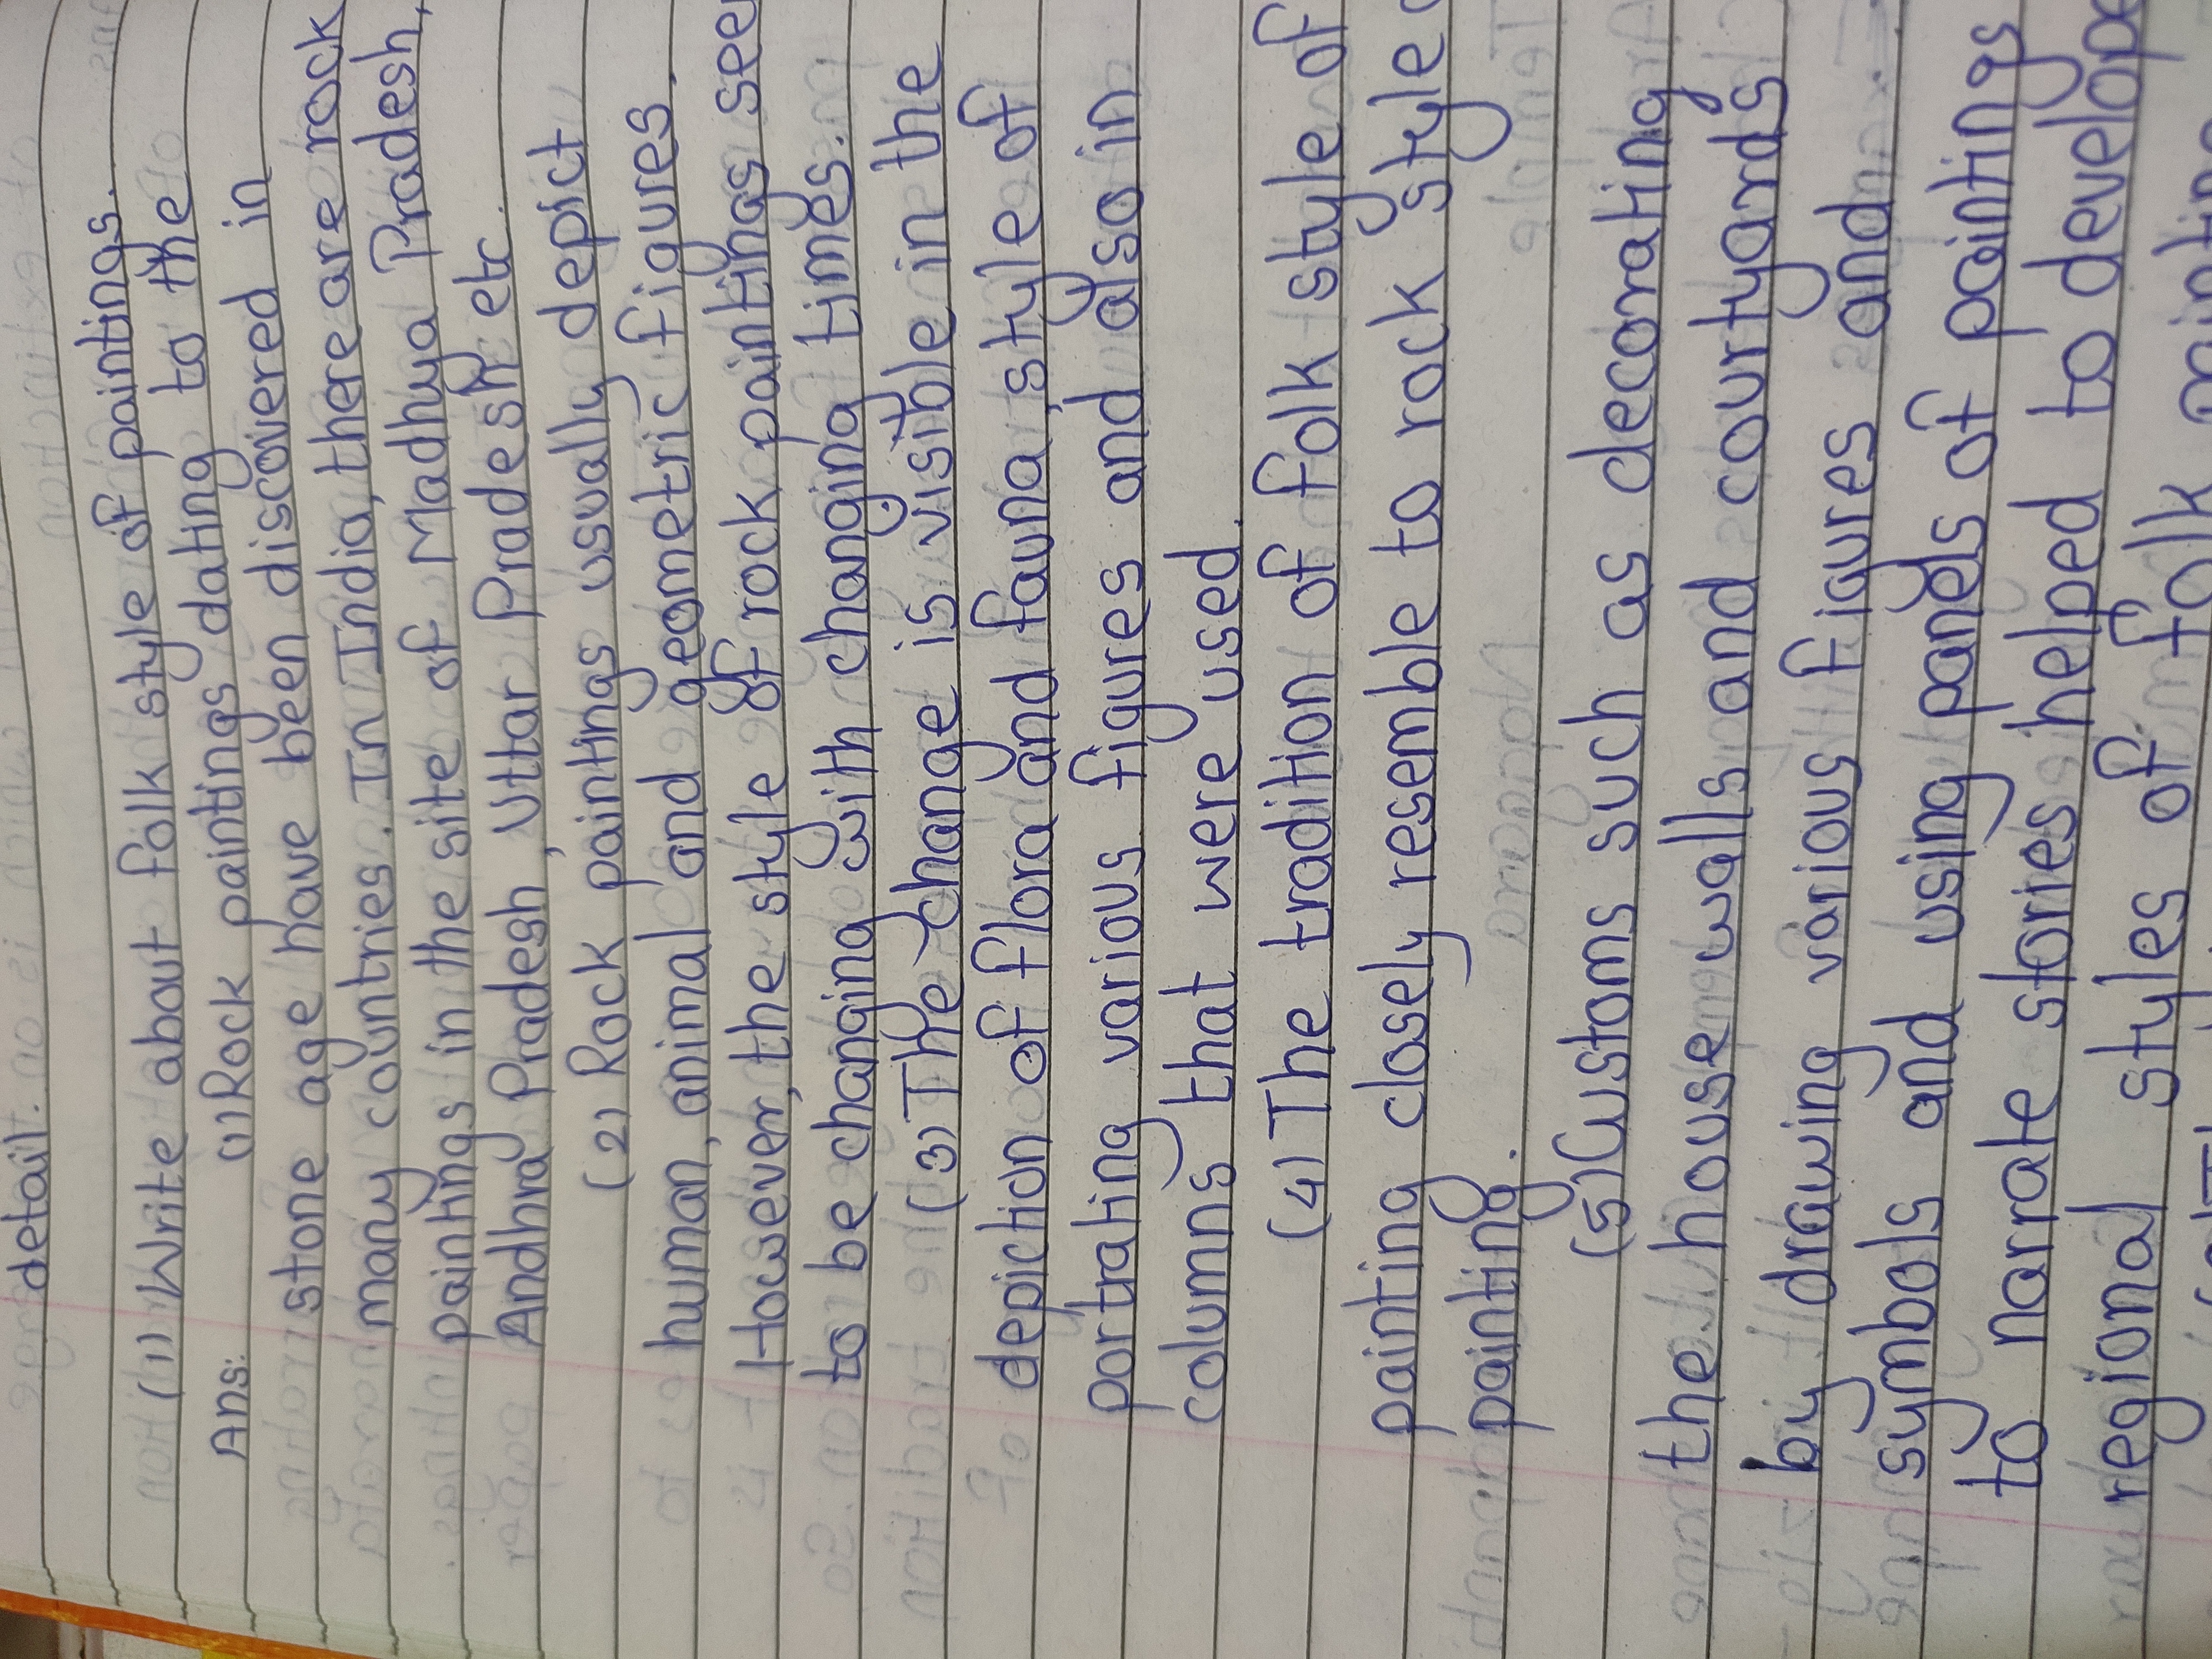 detail.
(1) Write about folk style of paintings.
Ans: (1) Rock paintings dating to the
stone age have been discovered in
many countries. In India, there are rock
paintings in the site of Madhya Pradesh,
Andhra Pradesh, Uttar Pradesh etc.
(2) Rock paintings usually depict
human, animal and geometric figures.
However, the style of rock paintings see
to be changing with changing times.
(3) The change is visible in the
depiction of flora and fauna, style of
portrating various figures and also in
columns that were used.
(4) The tradition of folk style of
painting closely resemble to rock style
painting.
(5) Customs such as decorating
the house walls and courtyards
by drawing various figures and
symbols and using panels of paintings
to narrate stories helped to develope
regional styles of folk